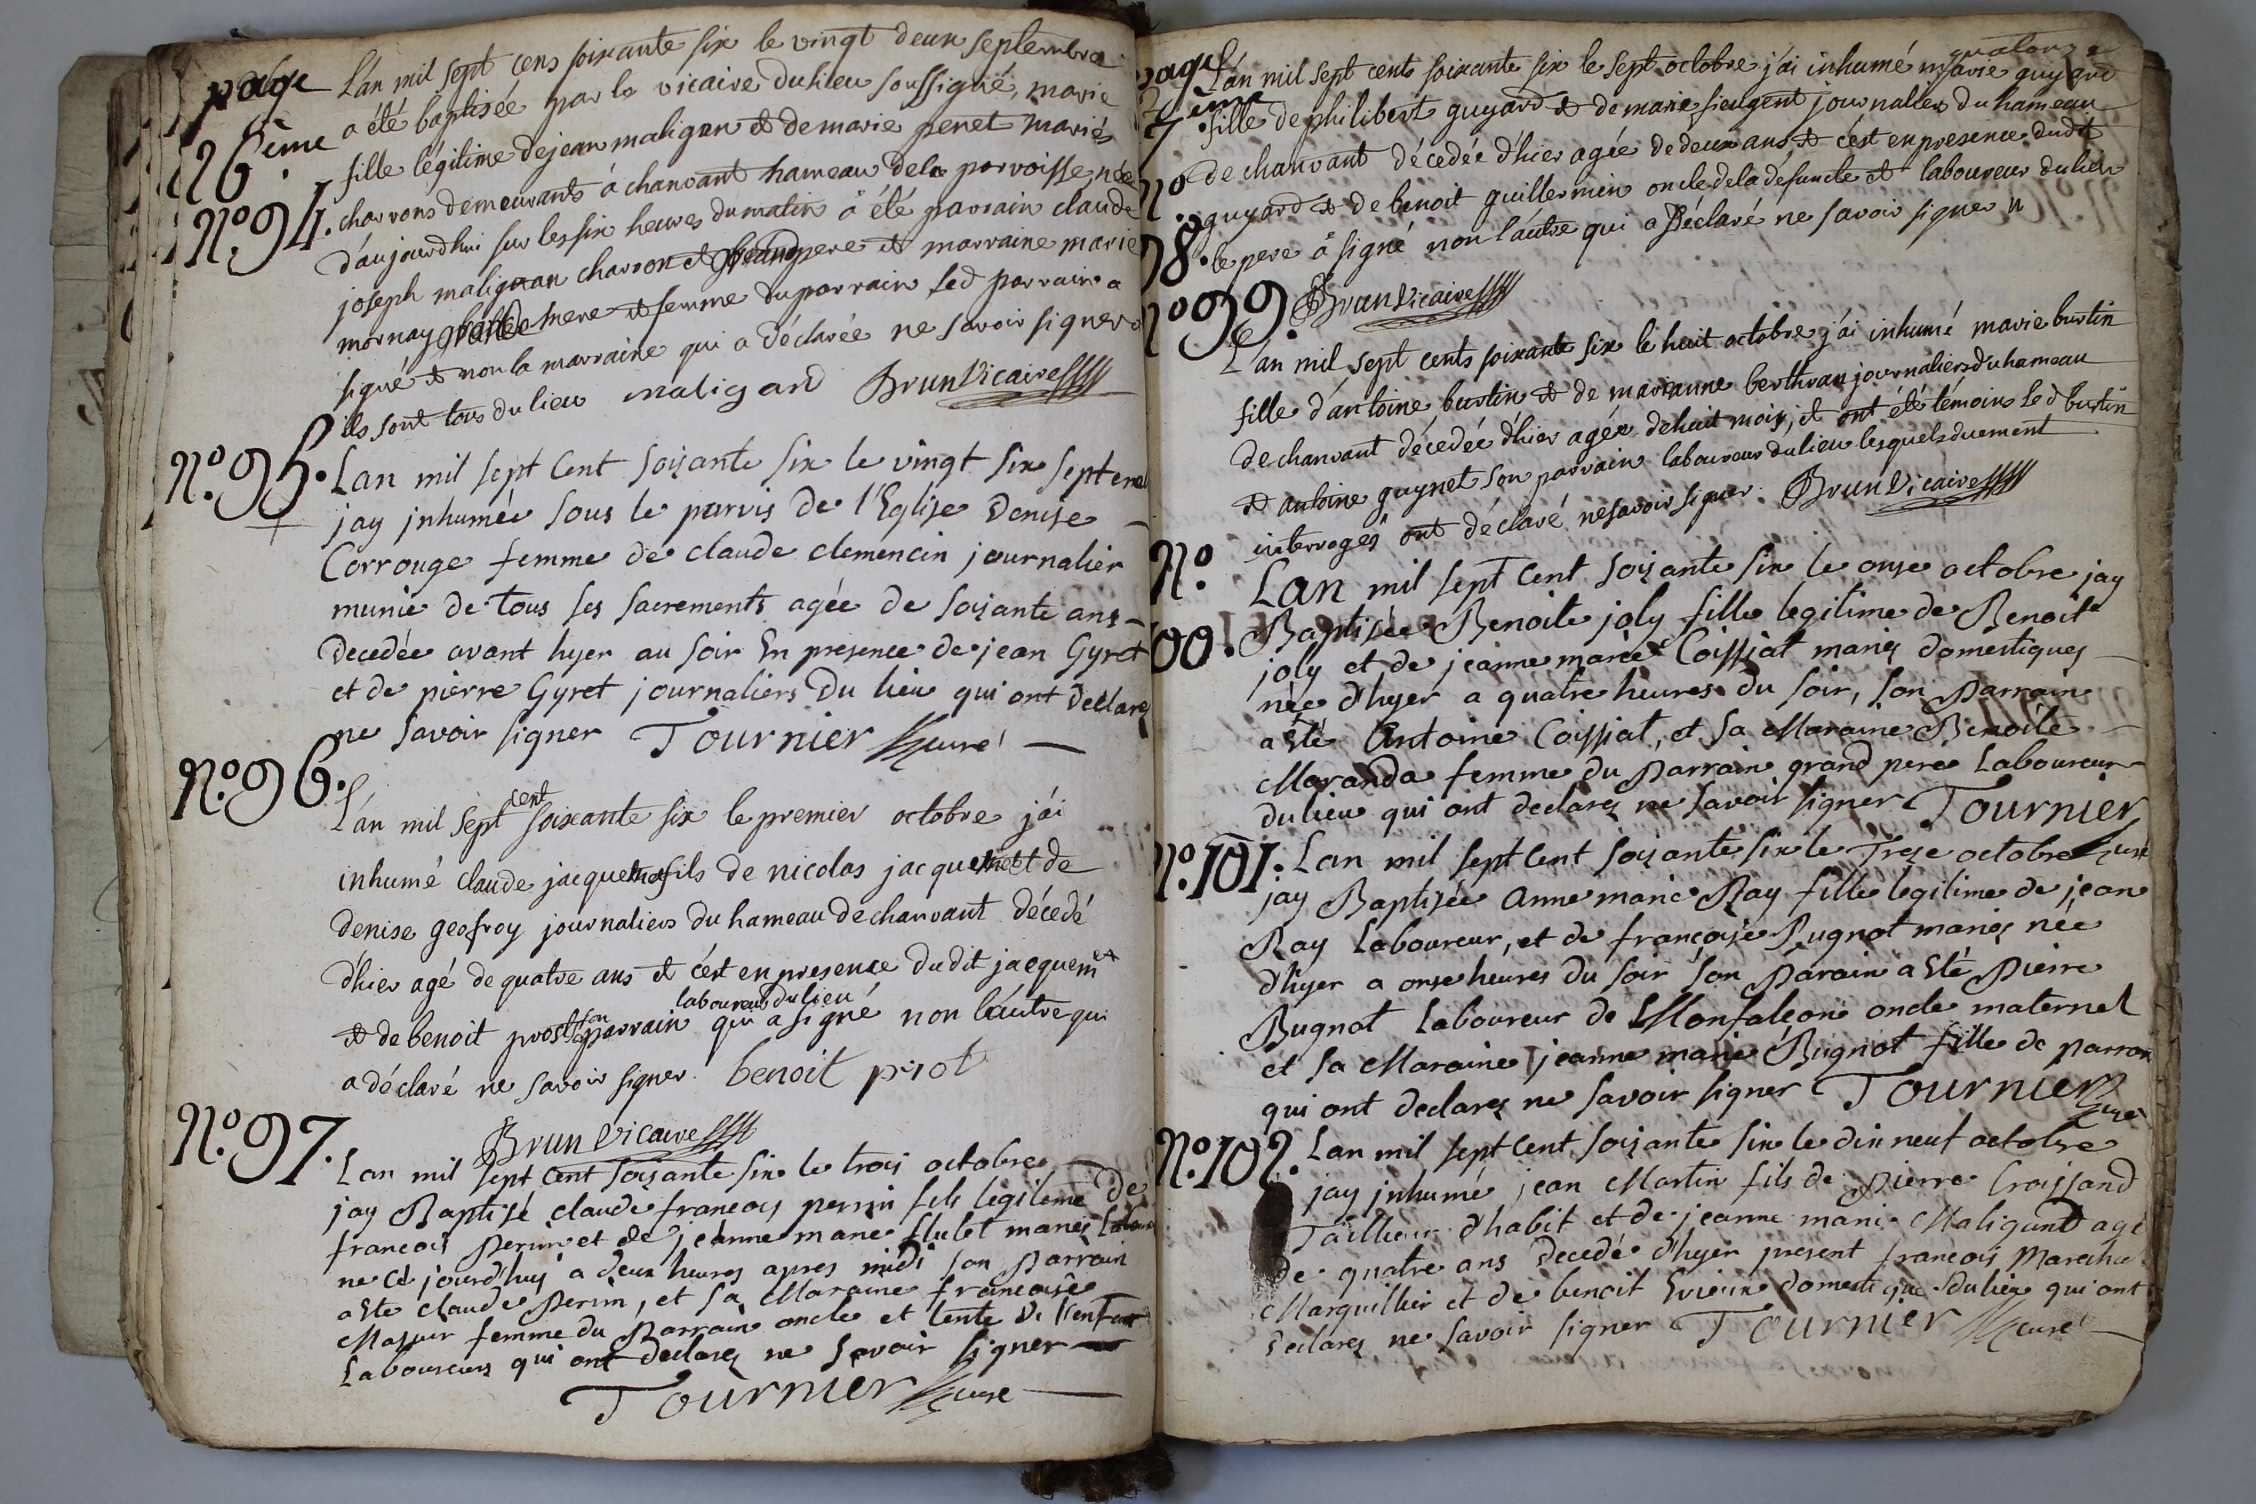 page
26.ème
N.º 94.
Lán mil sept cens soixante six le vingt deux septembre
a été baptisée par le vicaire dulieu soussigné, marie
fille légitime dejean maligan & demarie penet mariés
charrons demeurants á chanvant hameau dela parroisse née
d'aujourdhui sur lessix heures dumatin á été parrain claude
joseph maligan charron & grandpere & marraine marie
mornay mere & femme duparrain led parrain a
signé & non la marraine qui a déclarée ne savoir signer
ils sont tous dulieu maligand Brun Vicaire
N.º 95.
Lan mil sept Cent soizante six le vingt six septem
jay jnhumée sous le parvis de l'Eglise Denise
Corrouge femme de claude clemencin journalier
munie de tous ses sacrements agée de soizante ans
Decedée avant hyer au soir En presence de jean Gyret
et de pierre Gyret journaliers Du lieu qui ont Declarez
ne savoir signer Tournier curé
N.º 96.
cent
Lán mil sept soixante six le premier octobre j'ái
inhumé claude jacquemet fils de nicolas jacquemet & de
denise geofroy journaliers du hameau de chanvant décedé
d'hier agé de quatre ans & c'ést enpresence dudit jacquemet
son laboureur dulieu
& debenoit prost parrain qui a signé non l'áutre qui
a déclaré ne savoir signer. benoit prot
Brun Vicaire
N.º 97.
Lan mil sept Cent soizante six le trois octobre
jay Baptisé claude francois perrin fils legitime De
francois Perrin et de jeanne marie flubet mariés
ne Ce jourd'huy a deux heures apres midi son Parrain
a Eté claude Perrin, et sa Maraine francoise
femme du Parrain oncle et tente De l'enfant
Laboureurs qui ont declarez ne savoir signer
Tournier curé
page
27ème
Nº
98.
quatorze
Lán mil sept cents soixante six le sept octobre j'ái inhumé marie guyard
fille dephilibert guyard & demarie sieugent journaliers duhameau
dechanvant décedée d'hier agée dedeux ans & c'ést enpresence dudt
guyard & debenoit guillermin oncle dela défuncte & laboureur dulieu
le pere á signé non l'áutre qui a Déclaré ne savoir signer
Nº 99.
Brun Vicaire
Lan mil sept cents soixante six le huit octobre j'ái inhumé marie burtin
fille d'antoine burtin & de marianne berthran journaliers duhameau
dechanvant décedée d'hier agée dehuit mois, & ont été témoins led burtin
& antoine guynet son parrain laboureur dulieu lesquels duement
interrogés ont déclaré nesavoir signer. Brun Vicaire
N.º
100.
Lan mil sept Cent soizante six le onze octobre jay
Baptisée Benoite joly fille legitime de Benoit
joly et de jeanne marie Coissiat mariez domestiques
née d'hyer a quatre heures du soir, son Parrain
a Eté Antoine Coissiat, et sa Maraine Benoite
Maranda femme du Parrain grand pere Laboureur
dulieu qui ont declarez ne savoir signer Tournier
curé
N.º 101.
Lan mil sept Cent soizante six le Treze octobre
jay Baptisée Anne marie Ray fille legitime de jean
Ray Laboureur, et de francoise Bugnot mariez née
d'hyer a onze heures du soir son Parain a Eté Pierre
Bugnot Laboureur de Monfalcone oncle maternel
et sa Maraine jeanne marie Bugnot fille de parrain
qui ont declarez ne savoir signer Tournier
curé
N.º 102.
Lan mil sept Cent soizante six le dix neuf octobre
jay jnhumé jean Martin fils de Pierre Croissand
Tailleur d'habit et de jeanne marie Maligand agé
De quatre ans Decedé d'hyer present francois Marechal
Marguillier et de benoit domestique Dulieu qui ont
declarez ne savoir signer Tournier curé